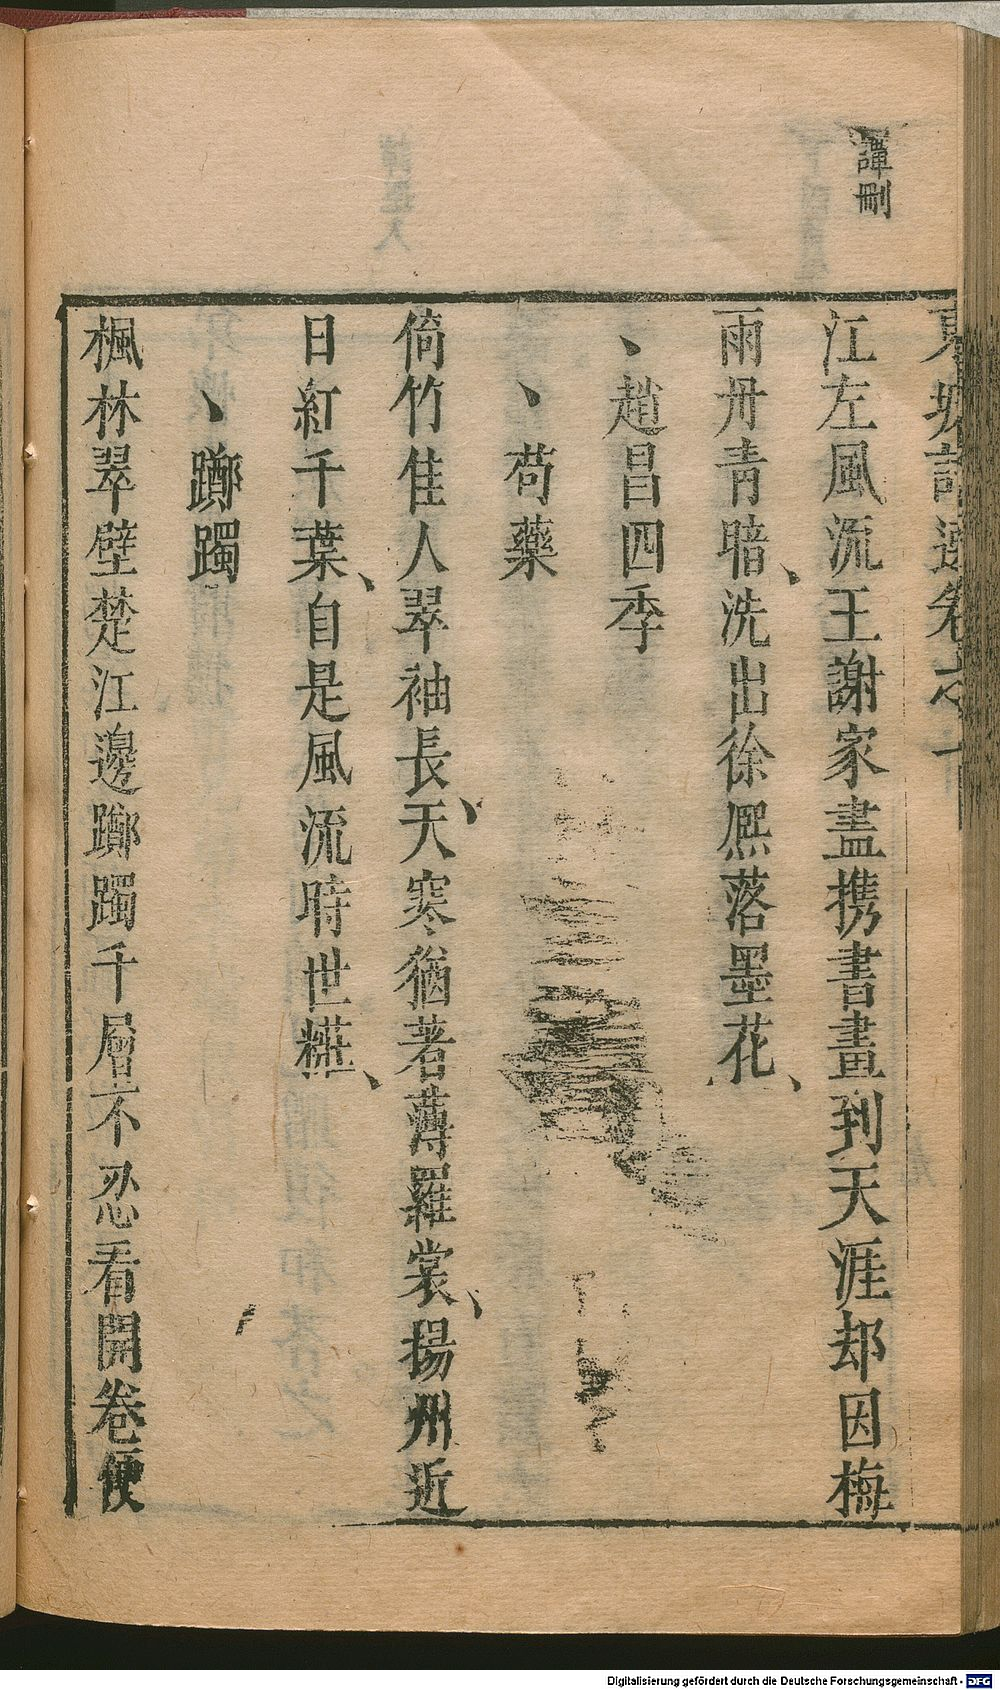 譚刪
東坡詩選卷之十
江左風流王謝家盡攜書畫到天涯却因梅
雨丹青暗、洗出徐熙落墨花、
、趙昌四季
、芍藥
倚竹佳人翠袖長、天寒猶著薄羅裳、揚州近
日紅千葉、自是風流時世糚、
、躑躅
楓林翠壁楚江邊躑躅千層不忍看開卷便
Digitalisierung gefördert durch die Deutsche Forschungsgemeinschaft - DFG